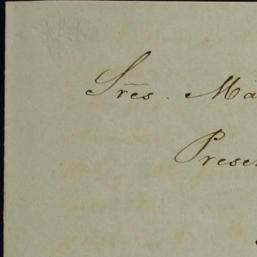 Sres. Ma
Presen